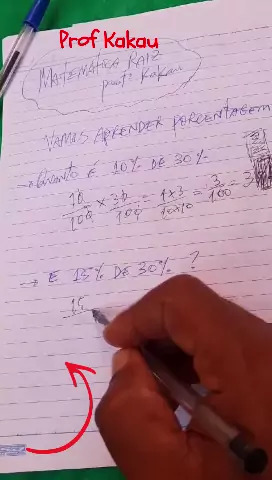 Prof Kakau
MATEMÁTICA RAIZ
prof: Kakau
VAMOS APRENDER PORCENTAGEM
→ Quanto é 10% DE 30%
10/100 × 30/100 = 1×3/10×10 = 3/100 = 3
→ E 15% DE 30% ?
15